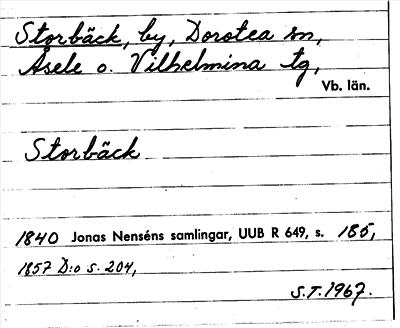 Storbäck, by, Dorotea sn,
Åsele o. Vilhelmina tg,
Vb. län.
Storbäck
1840 Jonas Nenséns samlingar, UUB R 649, s. 185,
1857 D:o s. 204,
S.T. 1967.